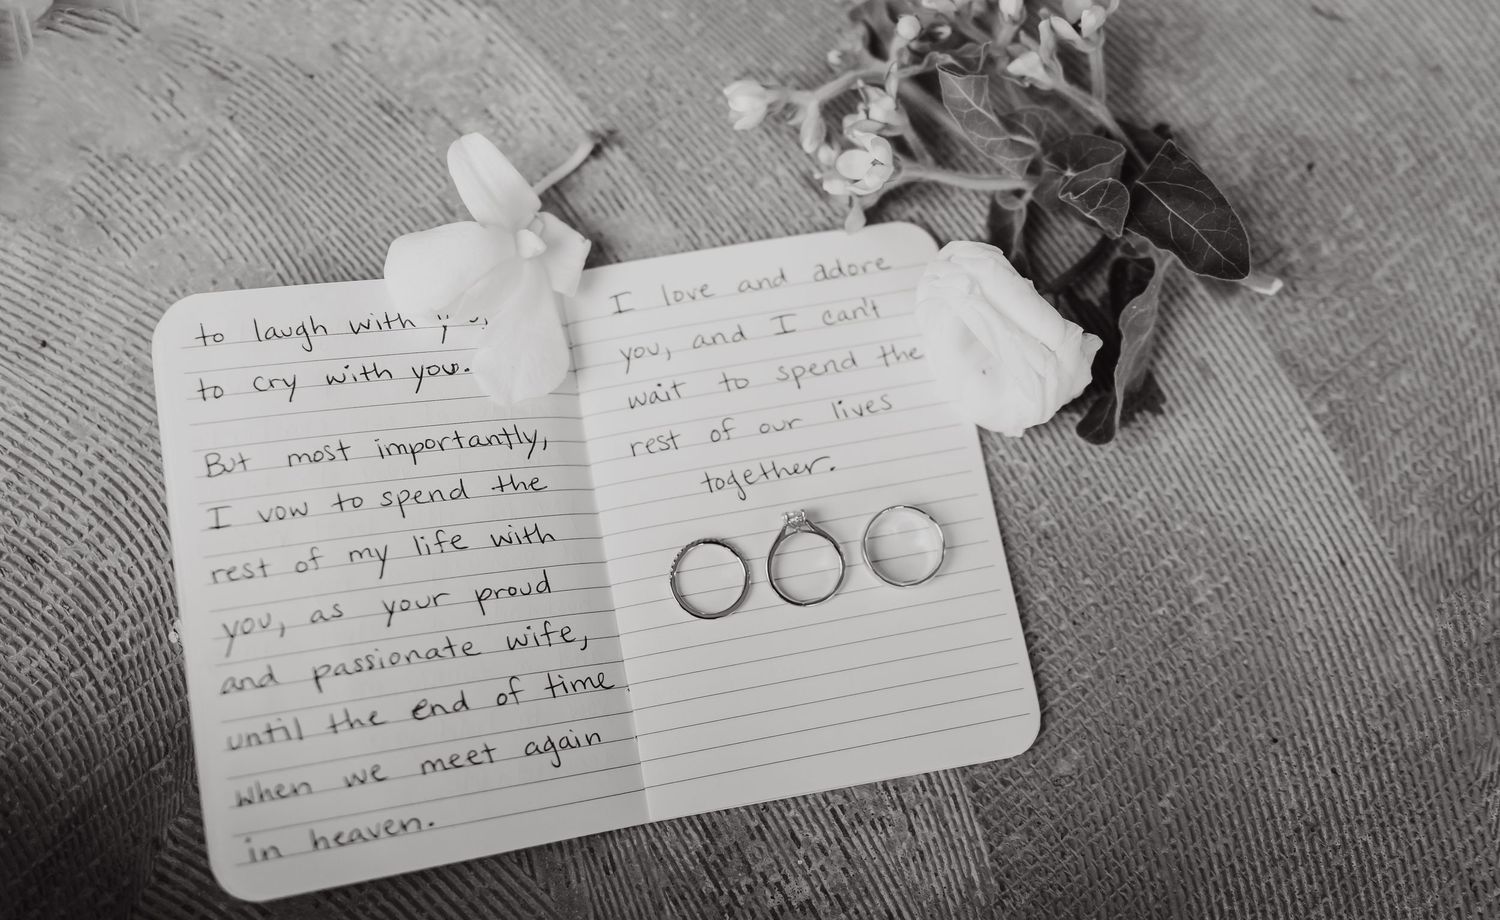 to laugh with you,
to cry with you.
But most importantly,
I vow to spend the
rest of my life with
you, as your proud
and passionate wife,
until the end of time
when we meet again
in heaven.
I love and adore
you, and I can't
wait to spend the
rest of our lives
together.